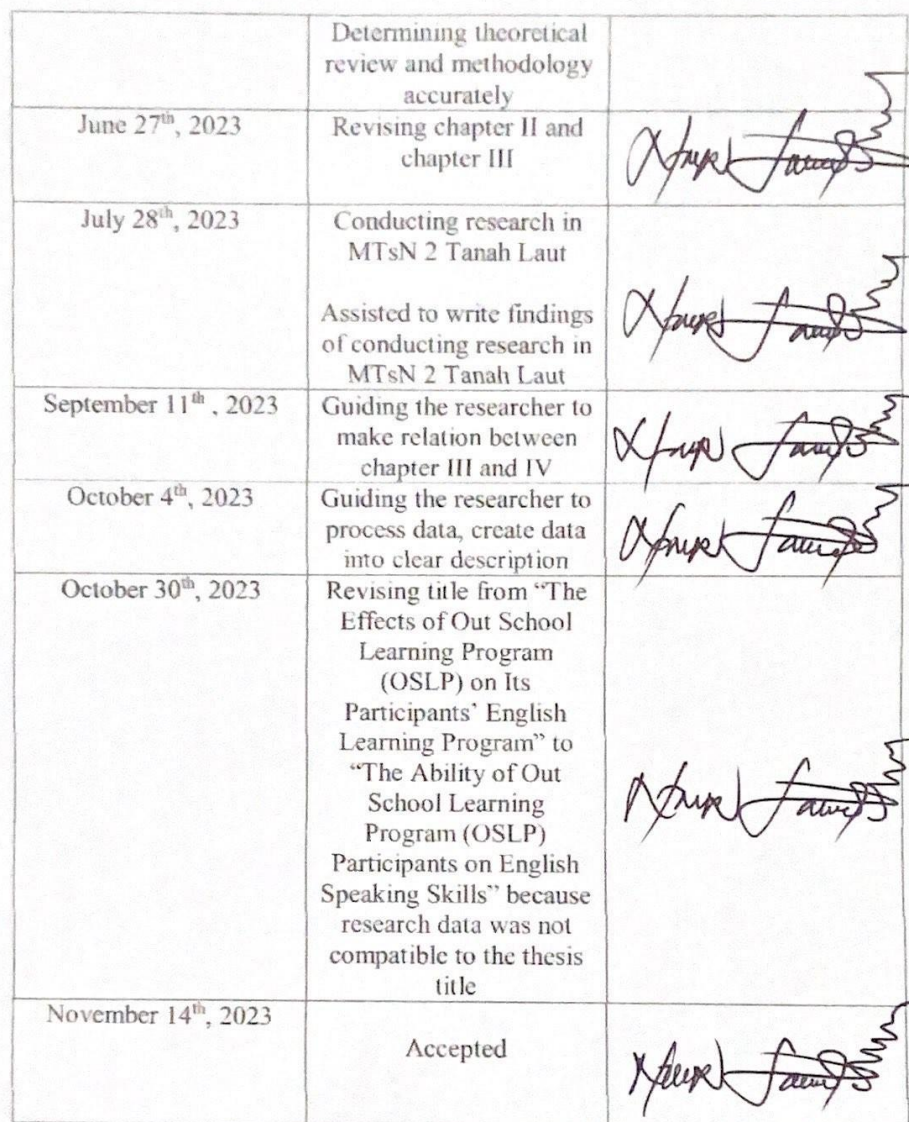 Determining theoretical
review and methodology
accurately
June 27th, 2023
Revising chapter II and
chapter III
July 28th, 2023
Conducting research in
MTsN 2 Tanah Laut
Assisted to write findings
of conducting research in
MTsN 2 Tanah Laut
September 11th , 2023
Guiding the researcher to
make relation between
chapter III and IV
October 4th, 2023
Guiding the researcher to
process data, create data
into clear description
October 30th, 2023
Revising title from “The
Effects of Out School
Learning Program
(OSLP) on Its
Participants’ English
Learning Program” to
“The Ability of Out
School Learning
Program (OSLP)
Participants on English
Speaking Skills” because
research data was not
compatible to the thesis
title
November 14th, 2023
Accepted